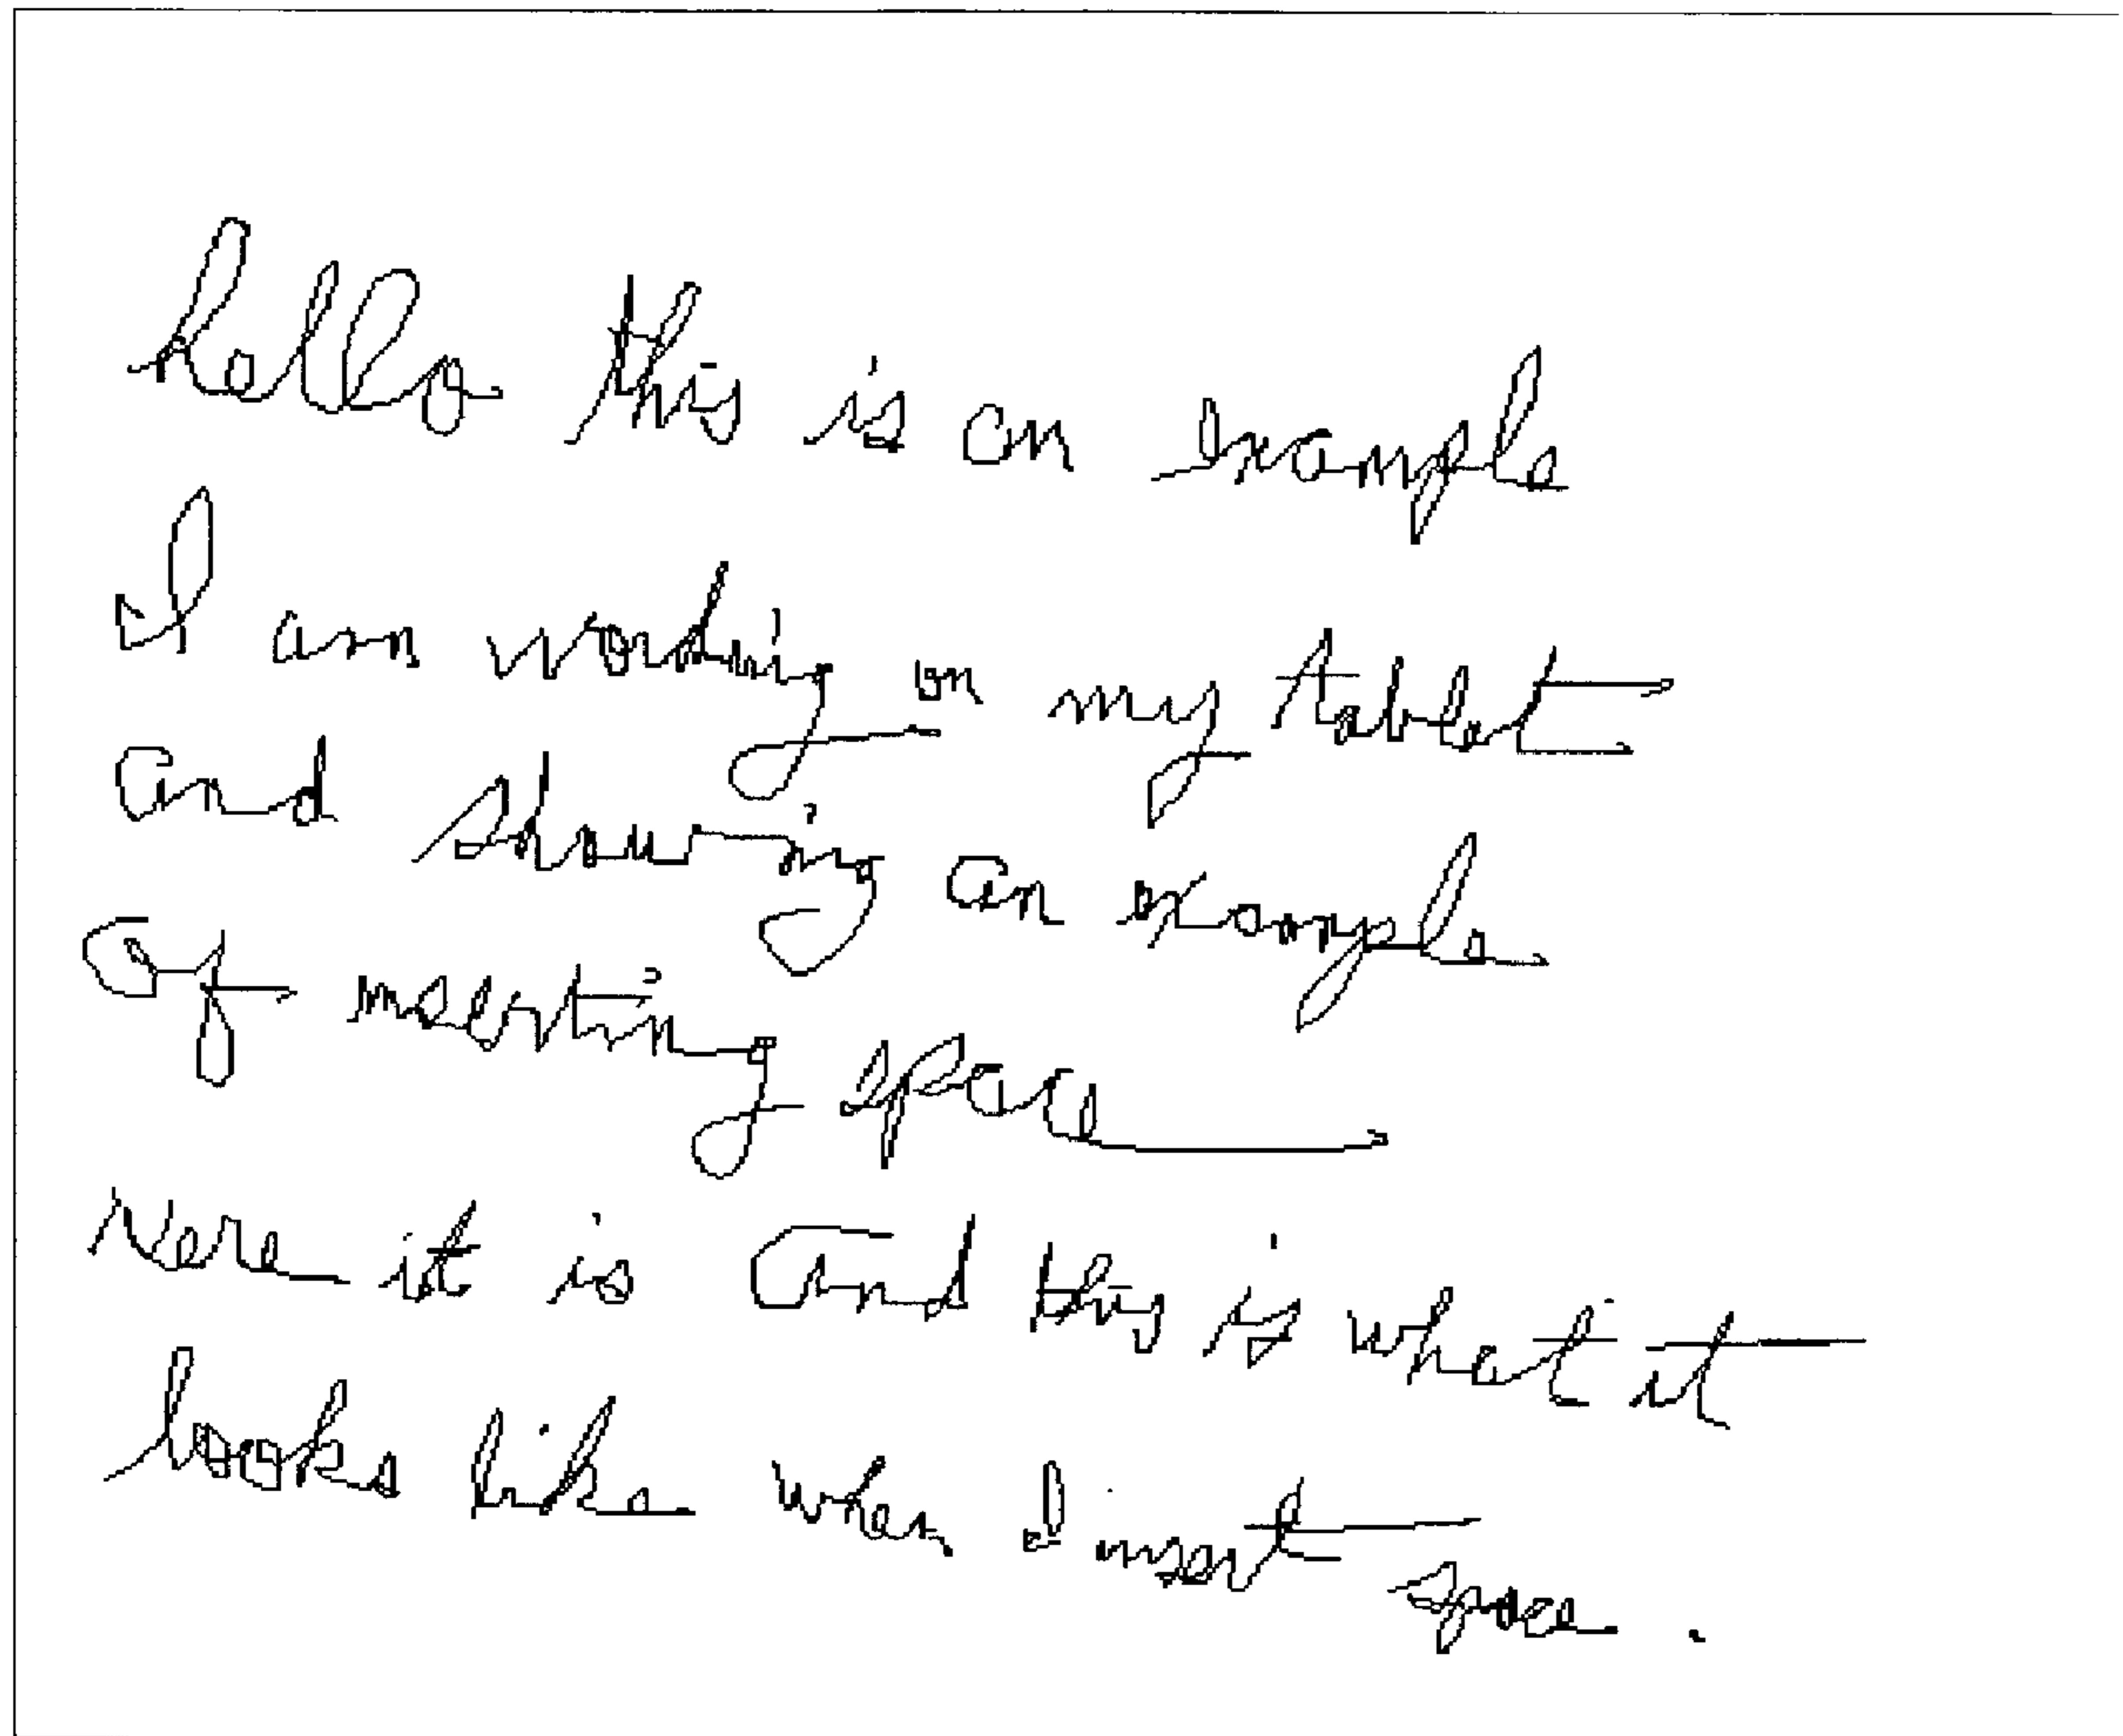 hello this is an example
I am working on my tablet
and showing an example
of inserting space
here it is and this is what it
looks like when I insert space.